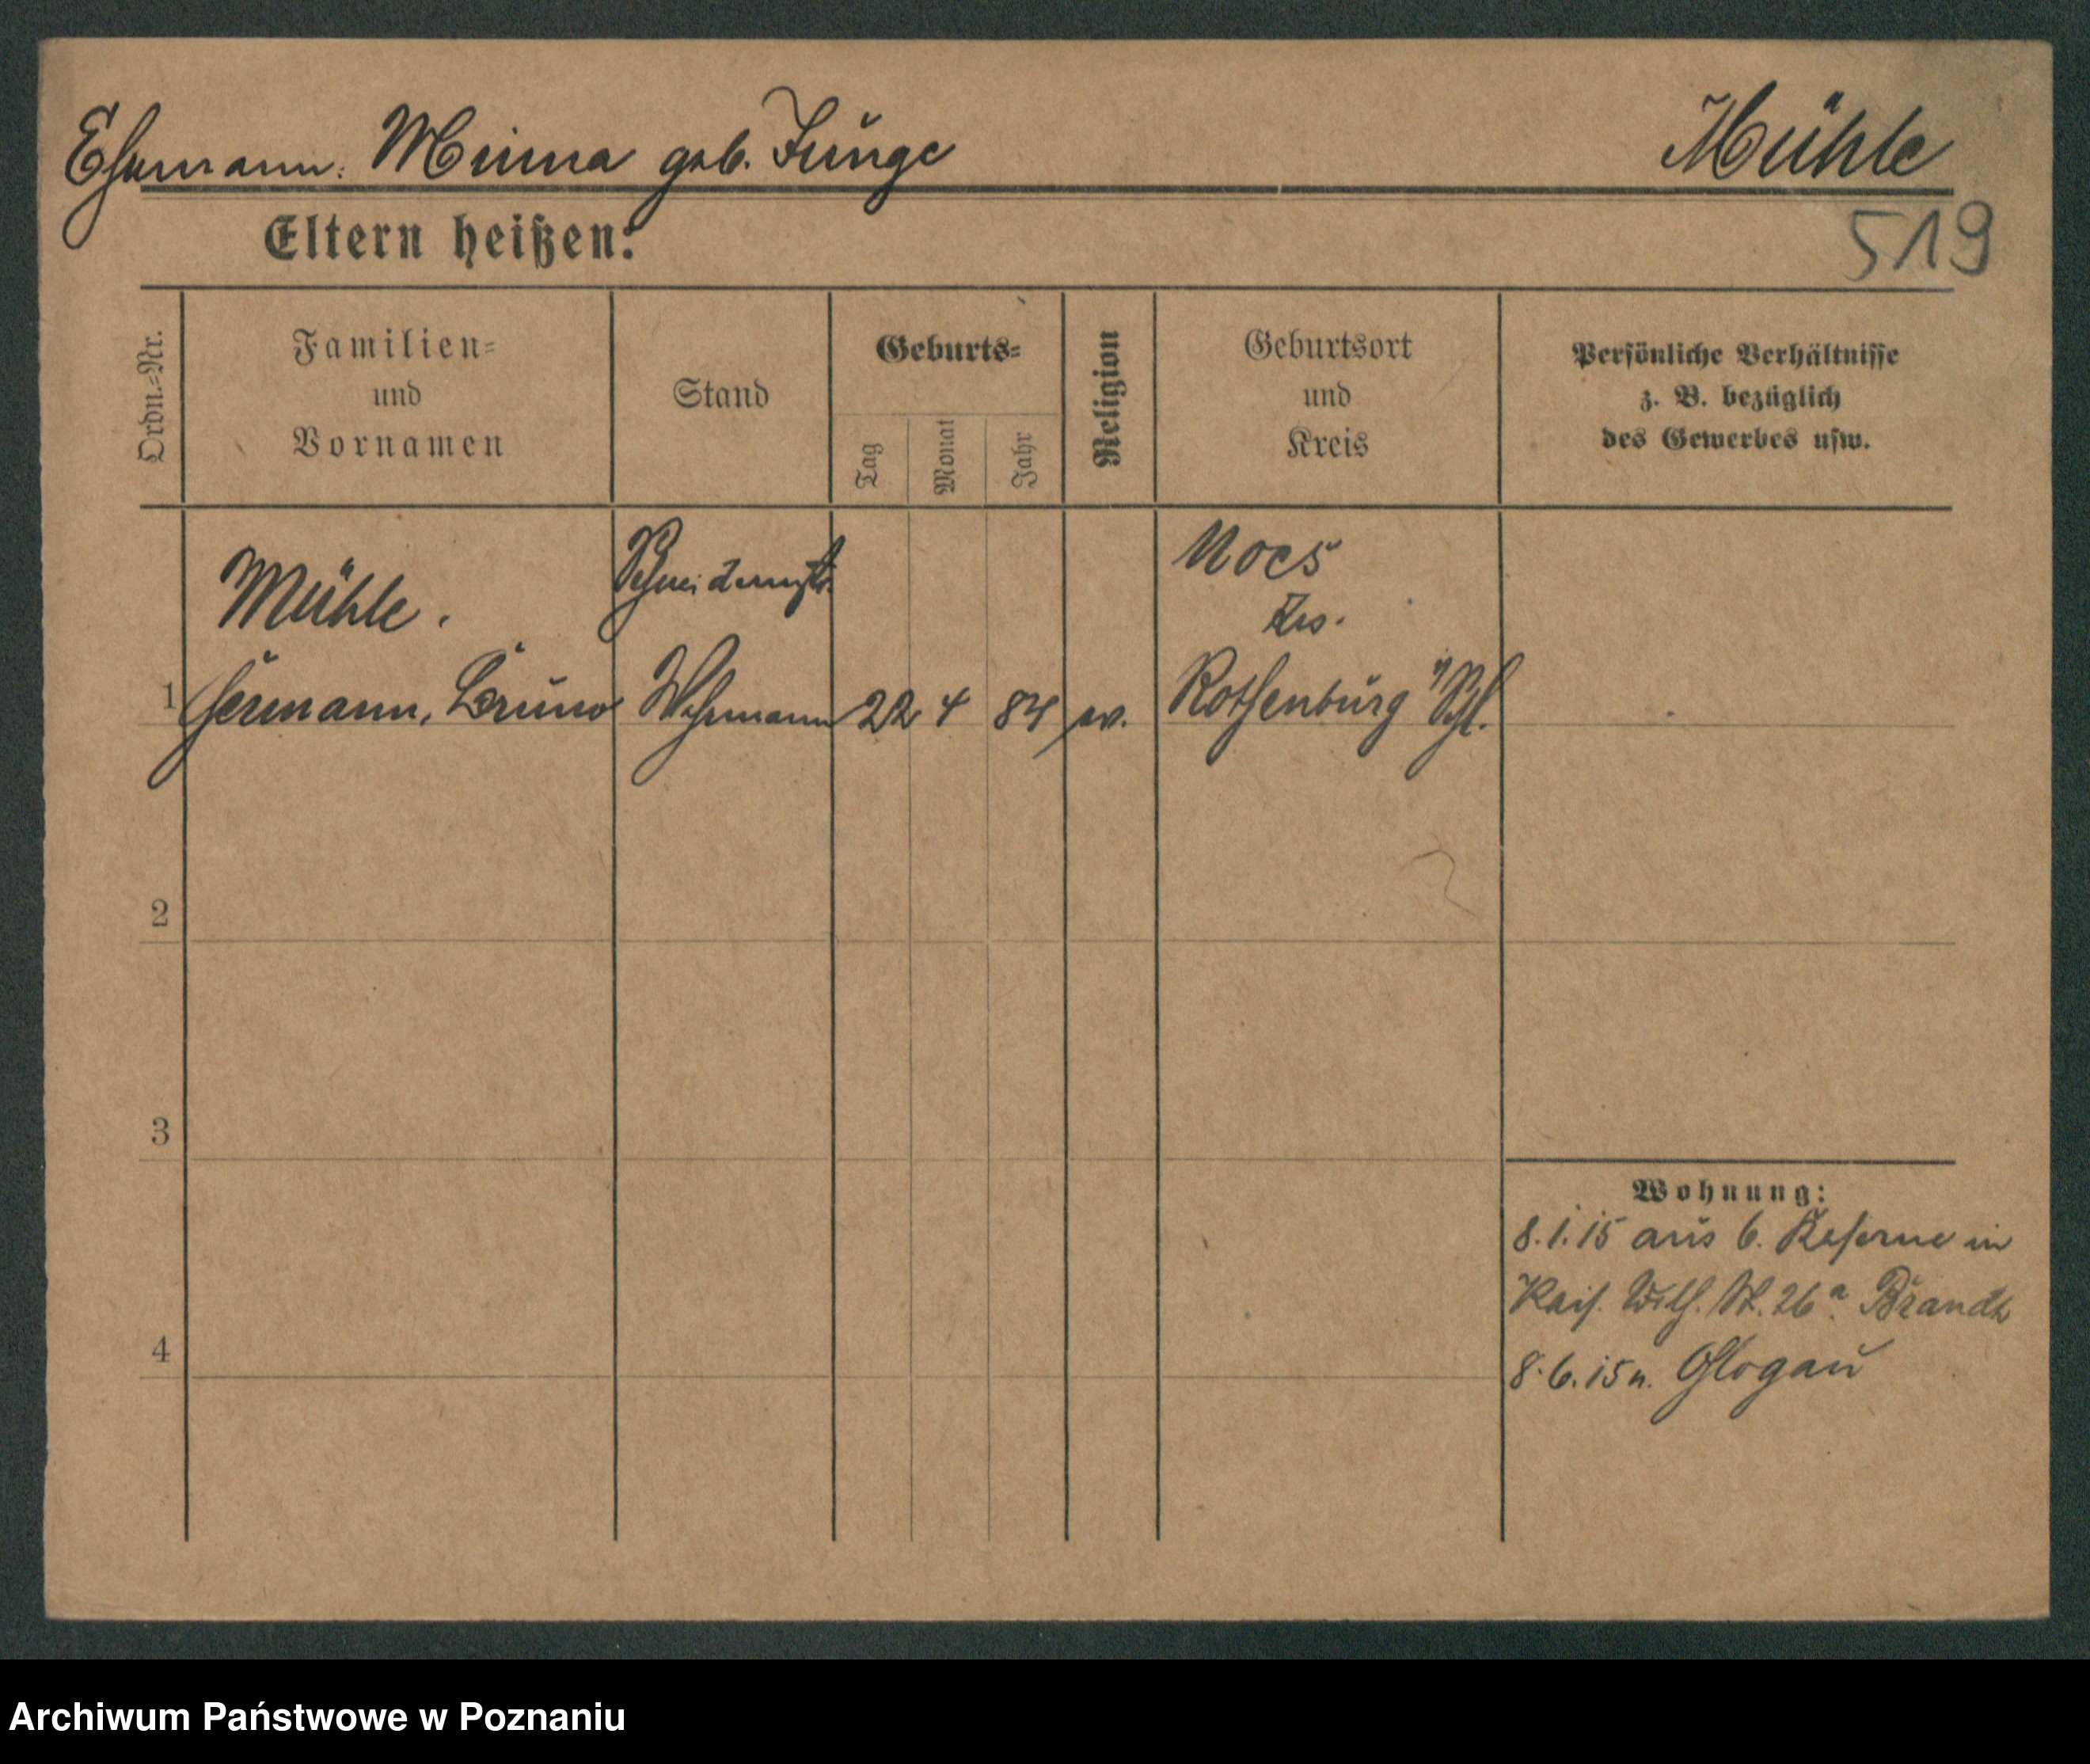 Ehemann: Minna geb. Junge
Mühle
519
Eltern heißen:
Ordn.=Nr.
Familien=
und
Vornamen
Stand
Geburts=
Tag
Monat
Jahr
Religion
Geburtsort
und
Kreis
Persönliche Verhältnisse
z. B. bezüglich
des Gewerbes usw.
Mühle.
Schneidermstr.
Noes
Krs.
1 Hermann, Bruno Wehrmann 22 4 84 ev. Rothenburg Schl.
2
3
4
Wohnung:
8.1.15 aus 6. Kaserne in
Kais. Wilh. St. 26a. Brandt
8.6.15 n. Glogau
Archiwum Państwowe w Poznaniu